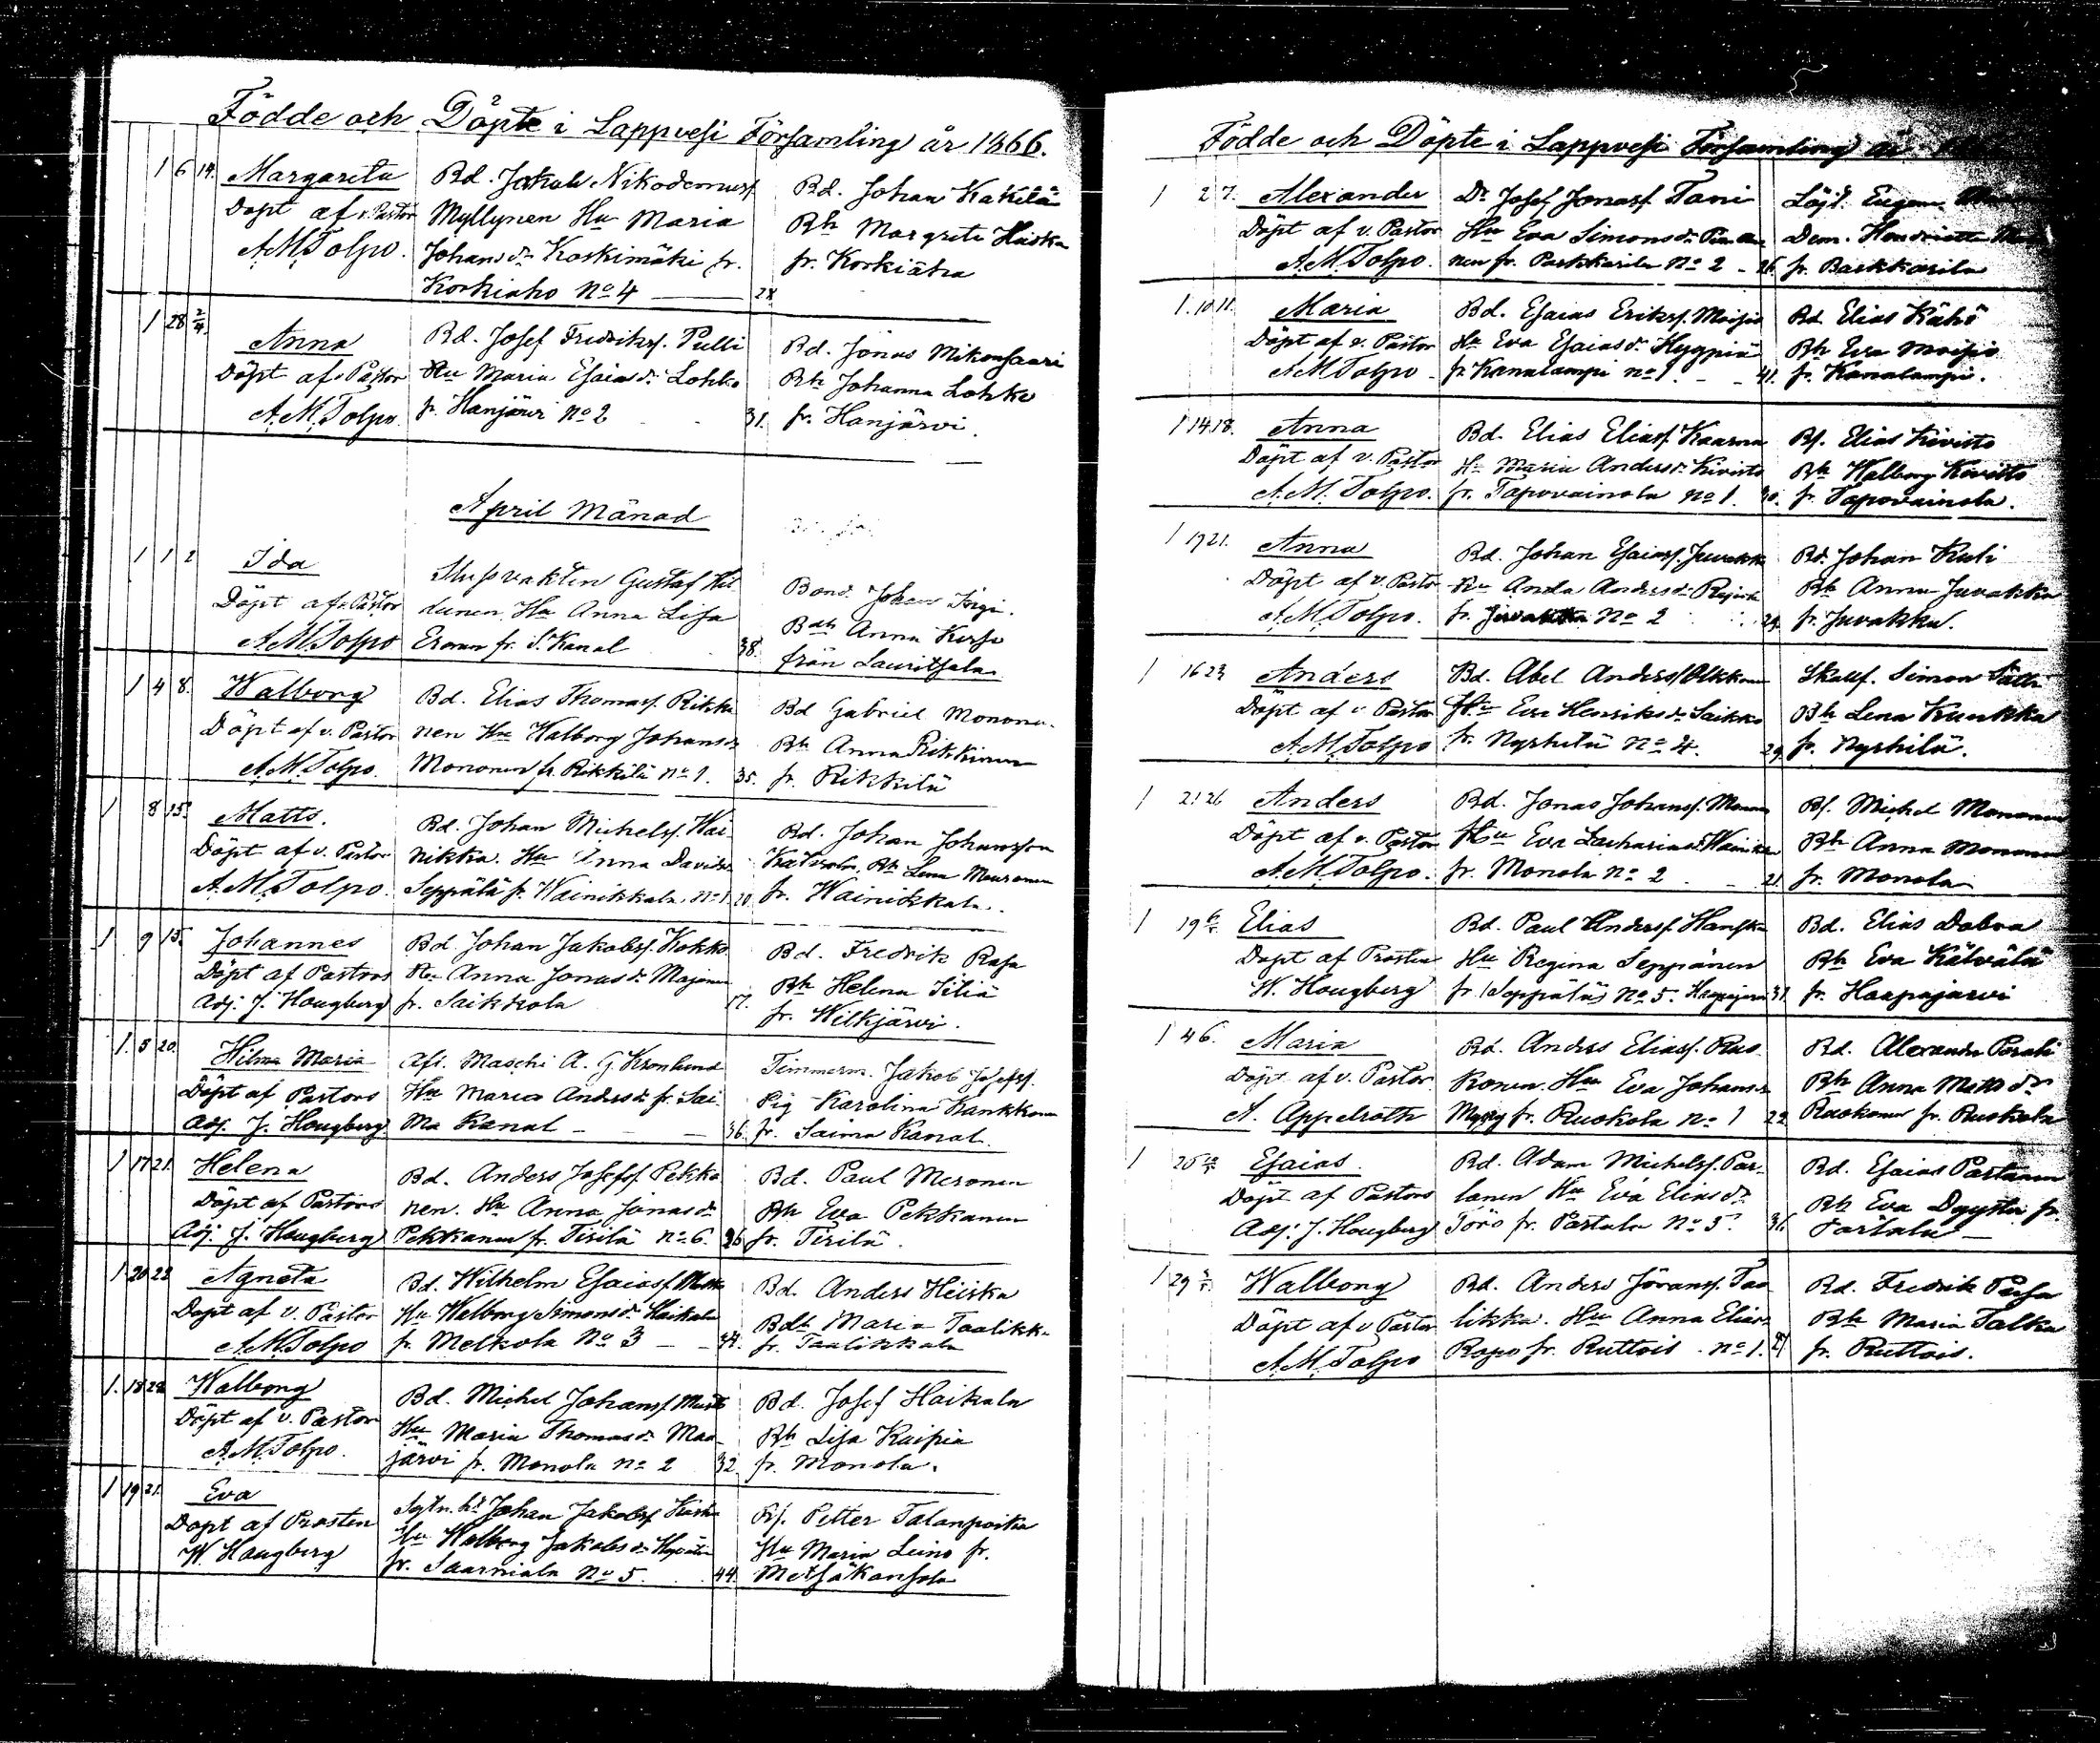 Födde och Döpte i Lappvesi Församling år 1866.
1 6 14. Margareta Bd. Jakob Nikodemusf. Bd. Johan Kakelä
Döpt af v. Pastor Myllynen Hu Maria Bh Margreta Heiska
A.M. Tolpo. Johansdr Koskimäki fr. fr. Korkiaha
Korkiaho No 4 28.
1 28 2/4. Anna Bd. Josef Fredriksf. Pulli Bd. Jonas Mikonsaari
Döpt af v. Pastor Hu Maria Esaiasdr Lohko Bh Johanna Lohko
A.M. Tolpo. fr. Hanjärvi No 2 31. fr. Hanjärvi.
April Månad
1 1 2 Ida Slussvakten Gustaf Bond. Johan
Döpt af v. Pastor Hu Anna Lisa Bdh Anna
A.M. Tolpo fr. S. Kanal 38. från Lauritsala
1 4 8. Walborg Bd. Elias Thomasf. Rikki- Bd Gabriel Monone-
Döpt af v. Pastor nen Hu Walborg Johansdr Bh Anna Rikkinen
A.M. Tolpo. Mononen fr. Rikkilä No 1. 35. fr. Rikkilä
1 8 15. Matts. Bd. Johan Michelsf. Wai- Bd. Johan Johansson
Döpt af v. Pastor nikka. Hu Anna Davidsdr Bh Lena
A.M. Tolpo. Seppälä fr. Wainikkala No 1. 20. fr. Wainikkala.
1 9 15. Johannes Bd. Johan Jakobsf. Kokko Bd. Fredrik Rasa
Döpt af Pastors Hu Anna Jonasdr Bh Helena Siliä
Adj. J. Hougberg fr. Saikkola 17. fr. Wilkjärvi.
1. 5 20. Hilma Maria Afs. Maschi A. G. Kronlund Timmerm. Jakob Josefsf.
Döpt af Pastors Hu Maria Andersdr fr. Sai- Pig Karolina Kankkonen
Adj. J. Hougberg. ma Kanal 36. fr. Saima Kanal.
1 17 21. Helena Bd. Anders Josefsf. Pekka- Bd. Paul Meronen
Döpt af Pastors nen. Hu Anna Jonasdr Bh Eva Pekkanen
Adj. J. Hougberg Pekkanen fr. Tirilä No 6. 26 fr. Tirilä.
1 20 22 Agneta Bd. Wilhelm Esaiasf. Bd. Anders Heiska
Döpt af v. Pastor Hu Walborg Simonsdr Haikala Bdh Maria Taalikka
A.M. Tolpo fr. Melkola No 3 fr. Taalikkala
1. 18 22 Walborg Bd. Michel Johansf. Bd. Josef Haikala
Döpt af v. Pastor Hu Maria Thomasdr Maa- Bh Lisa Kaipia
A.M. Tolpo. järvi fr. Monola No 2 32. fr. Monola.
1 19 21. Eva Johan Jakobsf. Petter Talanpoika
Döpt af Prosten Hu Walborg Jakobsdr Hu Maria Leino fr.
W. Hougberg fr. Saarniala No 5. 44. Metsäkansola
Födde och Döpte i Lappvesi Församling år
1 2 7. Alexander Dr Josef Jonasf. Toni Löjt. Eugene
Döpt af v. Pastor Hu Eva Simonsdr Dem. Hendriette
A.M. Tolpo. nen fr. Parkkarila No 2 26. fr. Barkkarila
1. 10 11. Maria Bd. Esaias Eriksf. Moisio Bd. Elias Kähö
Döpt af v. Pastor Hu Eva Esaiasdr Hyypiä Bh Eva Moisio
A.M. Tolpo fr. Kanalampi No 1. 41. fr. Kanalampi.
1 14 18. Anna Bd. Elias Eliasf. Kaarna Bf. Elias Kivisto
Döpt af v. Pastor Hu Maria Andersdr Kivisto Bh Walborg Kivisto
A.M. Tolpo. fr. Tapavainola No 1. 30. fr. Tapavainola.
1 19 21. Anna Bd. Johan Esaiasf. Juvakka Bd. Johan Kuli
Döpt af v. Pastor Hu Anda Andersdr Bh Anna Juvakka
A.M. Tolpo. fr. Juvakka No 2 29. fr. Juvakka.
1 16 23 Anders Bd. Abel Andersf. Olkkonen Skallf. Simon
Döpt af v. Pastor Hu Eva Henriksdr Saikko Bh Lena Kunkka
A.M. Tolpo fr. Nyrhilä No 4. 29. fr. Nyrhilä.
1 21 26 Anders Bd. Jonas Johansf. Monone Bf. Michel Mononen
Döpt af v. Pastor Hu Eva Zachariasdr Bh Anna Mononen
A.M. Tolpo. fr. Monola No 2 21. fr. Monola
1 19 Elias Bd. Paul Andersf. Hanska Bd. Elias Dobra
Döpt af Prosten Hu Regina Seppänen Bh Eva Kälvälä
W. Hougberg fr. Seppäläs No 5. Haapajarvi 31. fr. Haapajarvi
1 4 6. Maria Bd. Anders Eliasf. Ruo- Bd. Alexander
Döpt af v. Pastor. konen. Hu Eva Johansdr Bh Anna Mattsdr
A. Appelroth fr. Ruokola No 1 22. Ruokonen fr. Ruokola
1 Esaias. Bd. Adam Michelsf. Par- Bd. Esaias Partanen
Döpt af Pastors tanen Hu Eva Eliasdr Bh Eva fr.
Adj. J. Hougberg Törö fr. Partala No 5. 36. Partala
1 29 Walborg Bd. Anders Göransf. Taa- Bd. Fredrik
Döpt af v. Pastor likka. Hu Anna Eliasdr Bh Maria Talka
A.M. Tolpo Ropo fr. Ruttois. No 1. 27. fr. Ruttois.